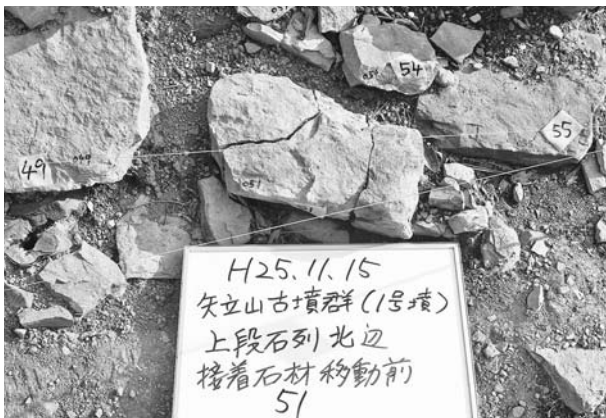 54
055
49
051
H25.11.15
矢立山古墳群(1号墳)
上段石列 北辺
接着石材 移動前
51